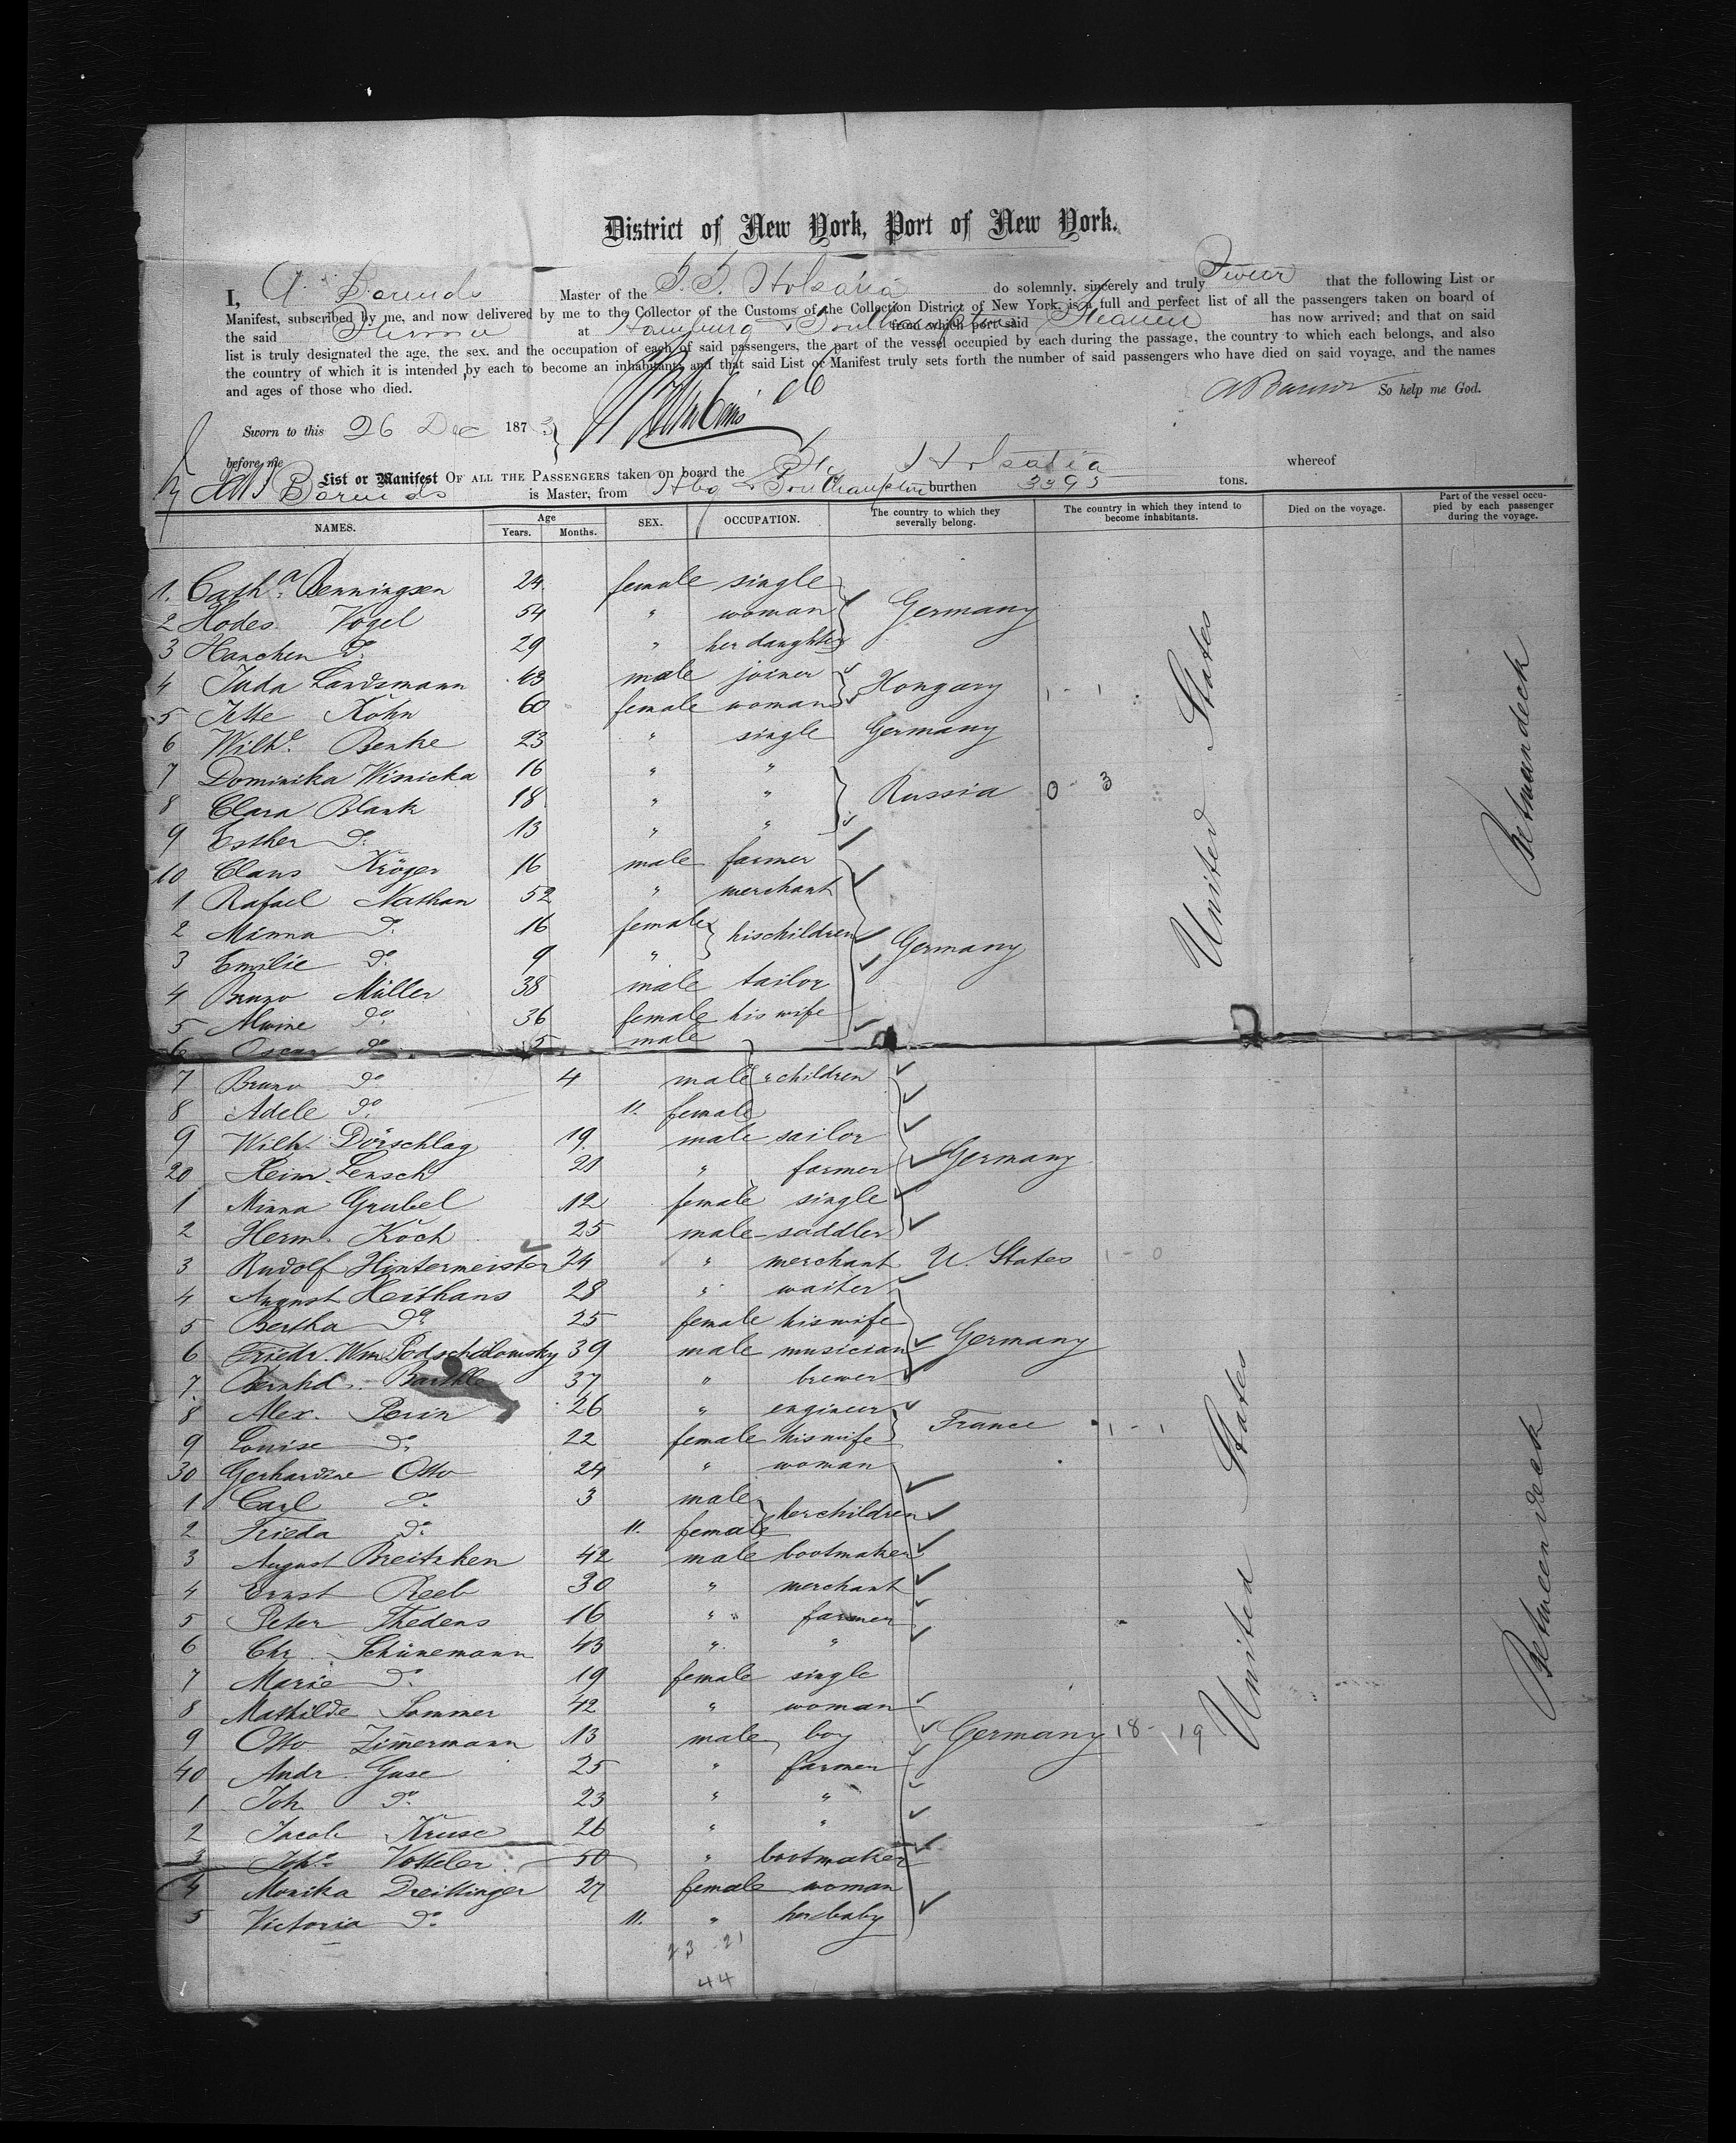 District of New York, Port of New York.
I, A Barends Master of the S.S. Holsatia do solemnly, sincerely and truly Swear that the following List or
Manifest, subscribed by me, and now delivered by me to the Collector of the Customs of the Collection District of New York, is a full and perfect list of all the passengers taken on board of
the said Steamer at Hamburg & Southampton from which port said Steamer has now arrived; and that on said
list is truly designated the age, the sex, and the occupation of each of said passengers, the part of the vessel occupied by each during the passage, the country to which each belongs, and also
the country of which it is intended by each to become an inhabitant; and that said List or Manifest truly sets forth the number of said passengers who have died on said voyage, and the names
and ages of those who died. So help me God.
Sworn to this 26 Dec 1873
before me
List or Manifest OF ALL THE PASSENGERS taken on board the Str Holsatia whereof
Barends is Master, from Hbg & Southampton burthen 3395 tons.
NAMES. Age Years. Months. SEX. OCCUPATION. The country to which they severally belong. The country in which they intend to become inhabitants. Died on the voyage. Part of the vessel occupied by each passenger during the voyage.
1. Cath.a Benningsen 24 female single
2 Hodes Vogel 54 " woman Germany
3 Hanchen Do. 29 " her daughter
4 Juda Landsmann 43 male joiner Hongary 1 - 1
5 Jette Kohn 60 female woman
6 Wilh.e Benke 23 " single Germany
7 Dominika Wisnicka 16 " "
8 Clara Blank 18 " " Russia 0 - 3
9 Esther Do. 13 " "
10 Claus Kröger 16 male farmer
1 Rafael Nathan 52 " merchant
2 Minna Do. 16 female his children
3 Emilie Do. 9 " Germany
4 Bruno Müller 38 male tailor
5 Alwine Do 36 female his wife
6 Oscar Do 5 male
United States
Betweendeck
7 Bruno Do 4 male " children
8 Adele Do. 11. female
9 Wilh. Dörschlag 19. male sailor
20 Heinr. Lensch 20 " farmer Germany
1 Minna Grubel 12 female single
2 Herm. Koch 25 male saddler
3 Rudolf Hintermeister 24 " merchant U. States 1 - 0
4 August Heithans 28 " waiter
5 Bertha Do 25 female his wife
6 Friedr. Wm. Podschidlowsky 39 male musician Germany
7. Bernhd. Barthle 37 " brewer
8 Alex. Perin 26 " engineer France 1 - 1
9 Louise Do. 22 female his wife
30 Gerhardine Otto 24 " woman
1 Carl Do. 3 male her children
2 Frieda Do. 11. female
3 August Breitzken 42 male bootmaker
4 Ernst Reeb 30 " merchant
5 Peter Thedens 16 " farmer
6 Chr. Schünemann 43 " "
7 Marie Do. 19 female single
8 Mathilde Sommer 42 " woman
9 Otto Zimermann 13 male boy Germany 18 - 19
40 Andr. Guse 25 " farmer
1 Joh. Do. 23 " "
2 Jacob Kruse 26 " "
3 Joh.s Votteler 50 " bootmaker
4 Monika Dreittinger 27 female woman
5 Victoria Do. 11. " her baby
United States
Betweendeck
23 21
44